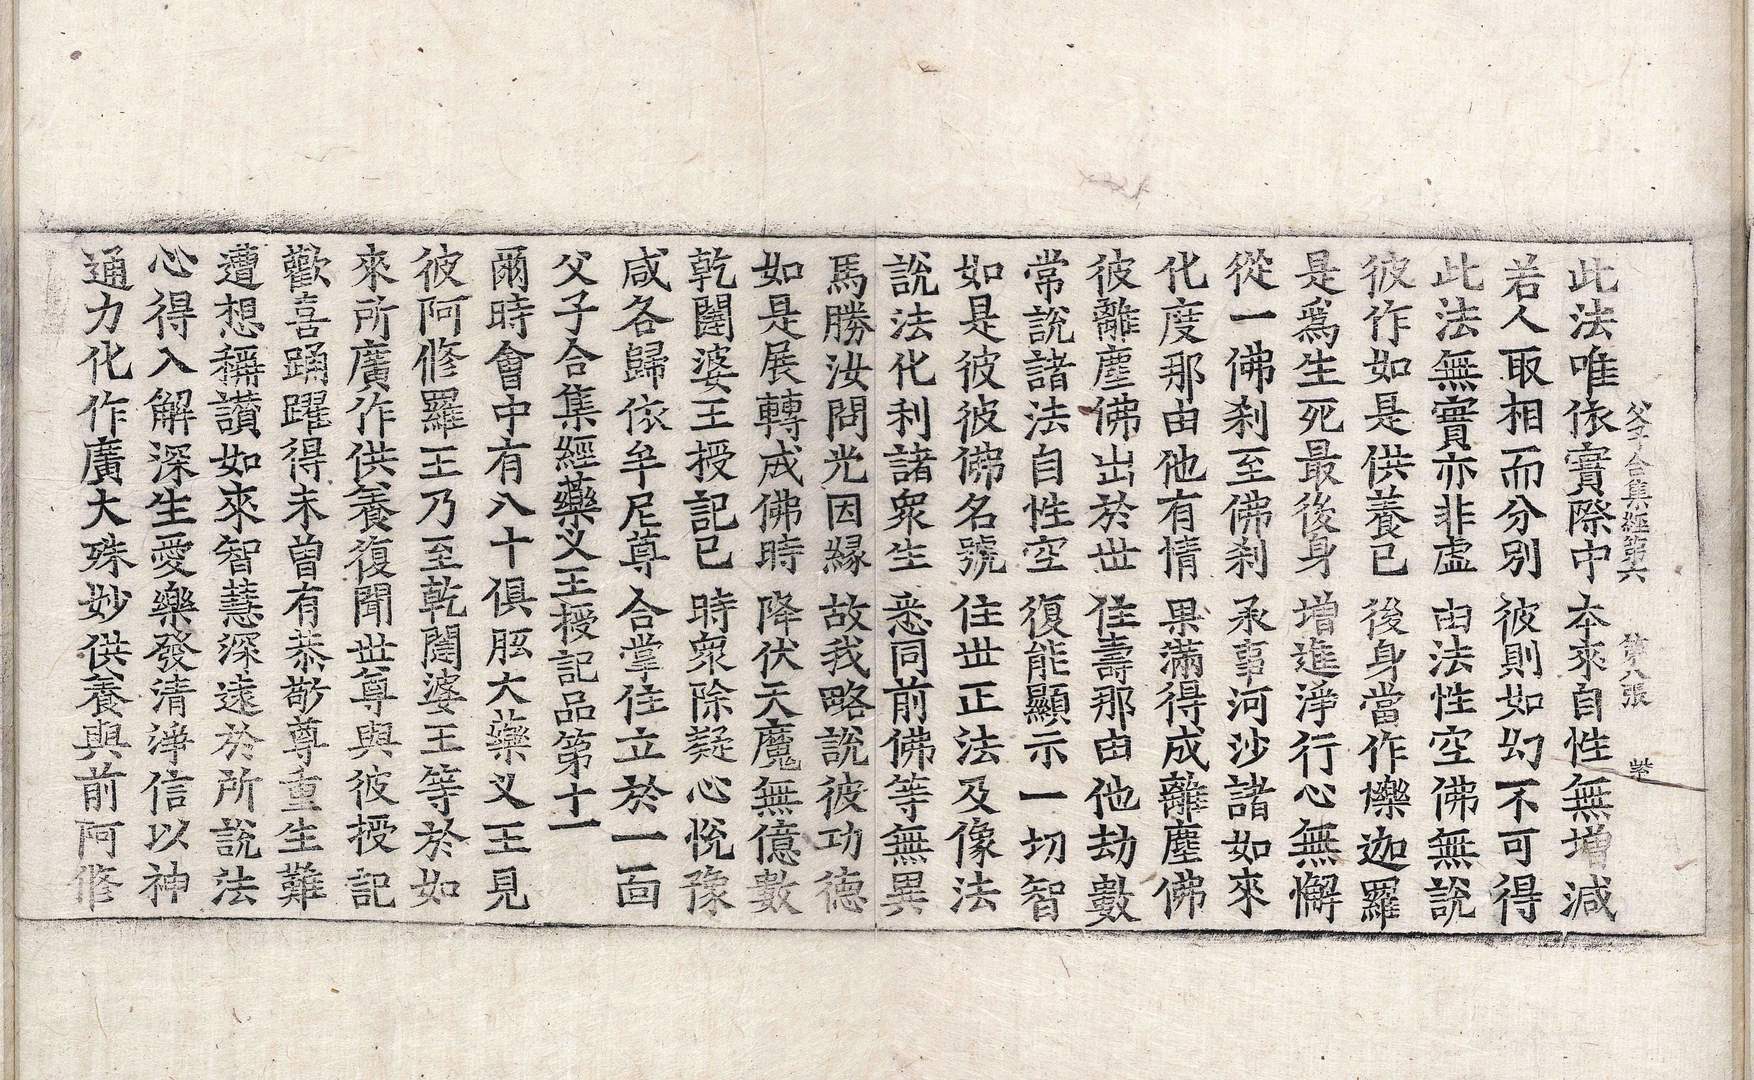 父子合集經第六　第八張　紫
此法唯依實際中　本來自性無增減
若人取相而分別　彼則如幻不可得
此法無實亦非虛　由法性空佛無說
彼作如是供養已　後身當作爍迦羅
是爲生死最後身　增進淨行心無懈
從一佛刹至佛刹　承事河沙諸如來
化度那由他有情　果滿得成離塵佛
彼離塵佛出於世　住壽那由他劫數
常說諸法自性空　復能顯示一切智
如是彼彼佛名號　住世正法及像法
說法化利諸衆生　悉同前佛等無異
馬勝汝問光因緣　故我略說彼功德
如是展轉成佛時　降伏天魔無億數
乾闥婆王授記已　時衆除疑心悅豫
咸各歸依牟尼尊　合掌住立於一面
父子合集經藥叉王授記品第十一
爾時會中有八十俱胝大藥叉王見
彼阿修羅王乃至乾闥婆王等於如
來所廣作供養復聞世尊與彼授記
歡喜踊躍得未曾有恭敬尊重生難
遭想稱讚如來智慧深遠於所說法
心得入解深生愛樂發清淨信以神
通力化作廣大殊妙供養與前阿修